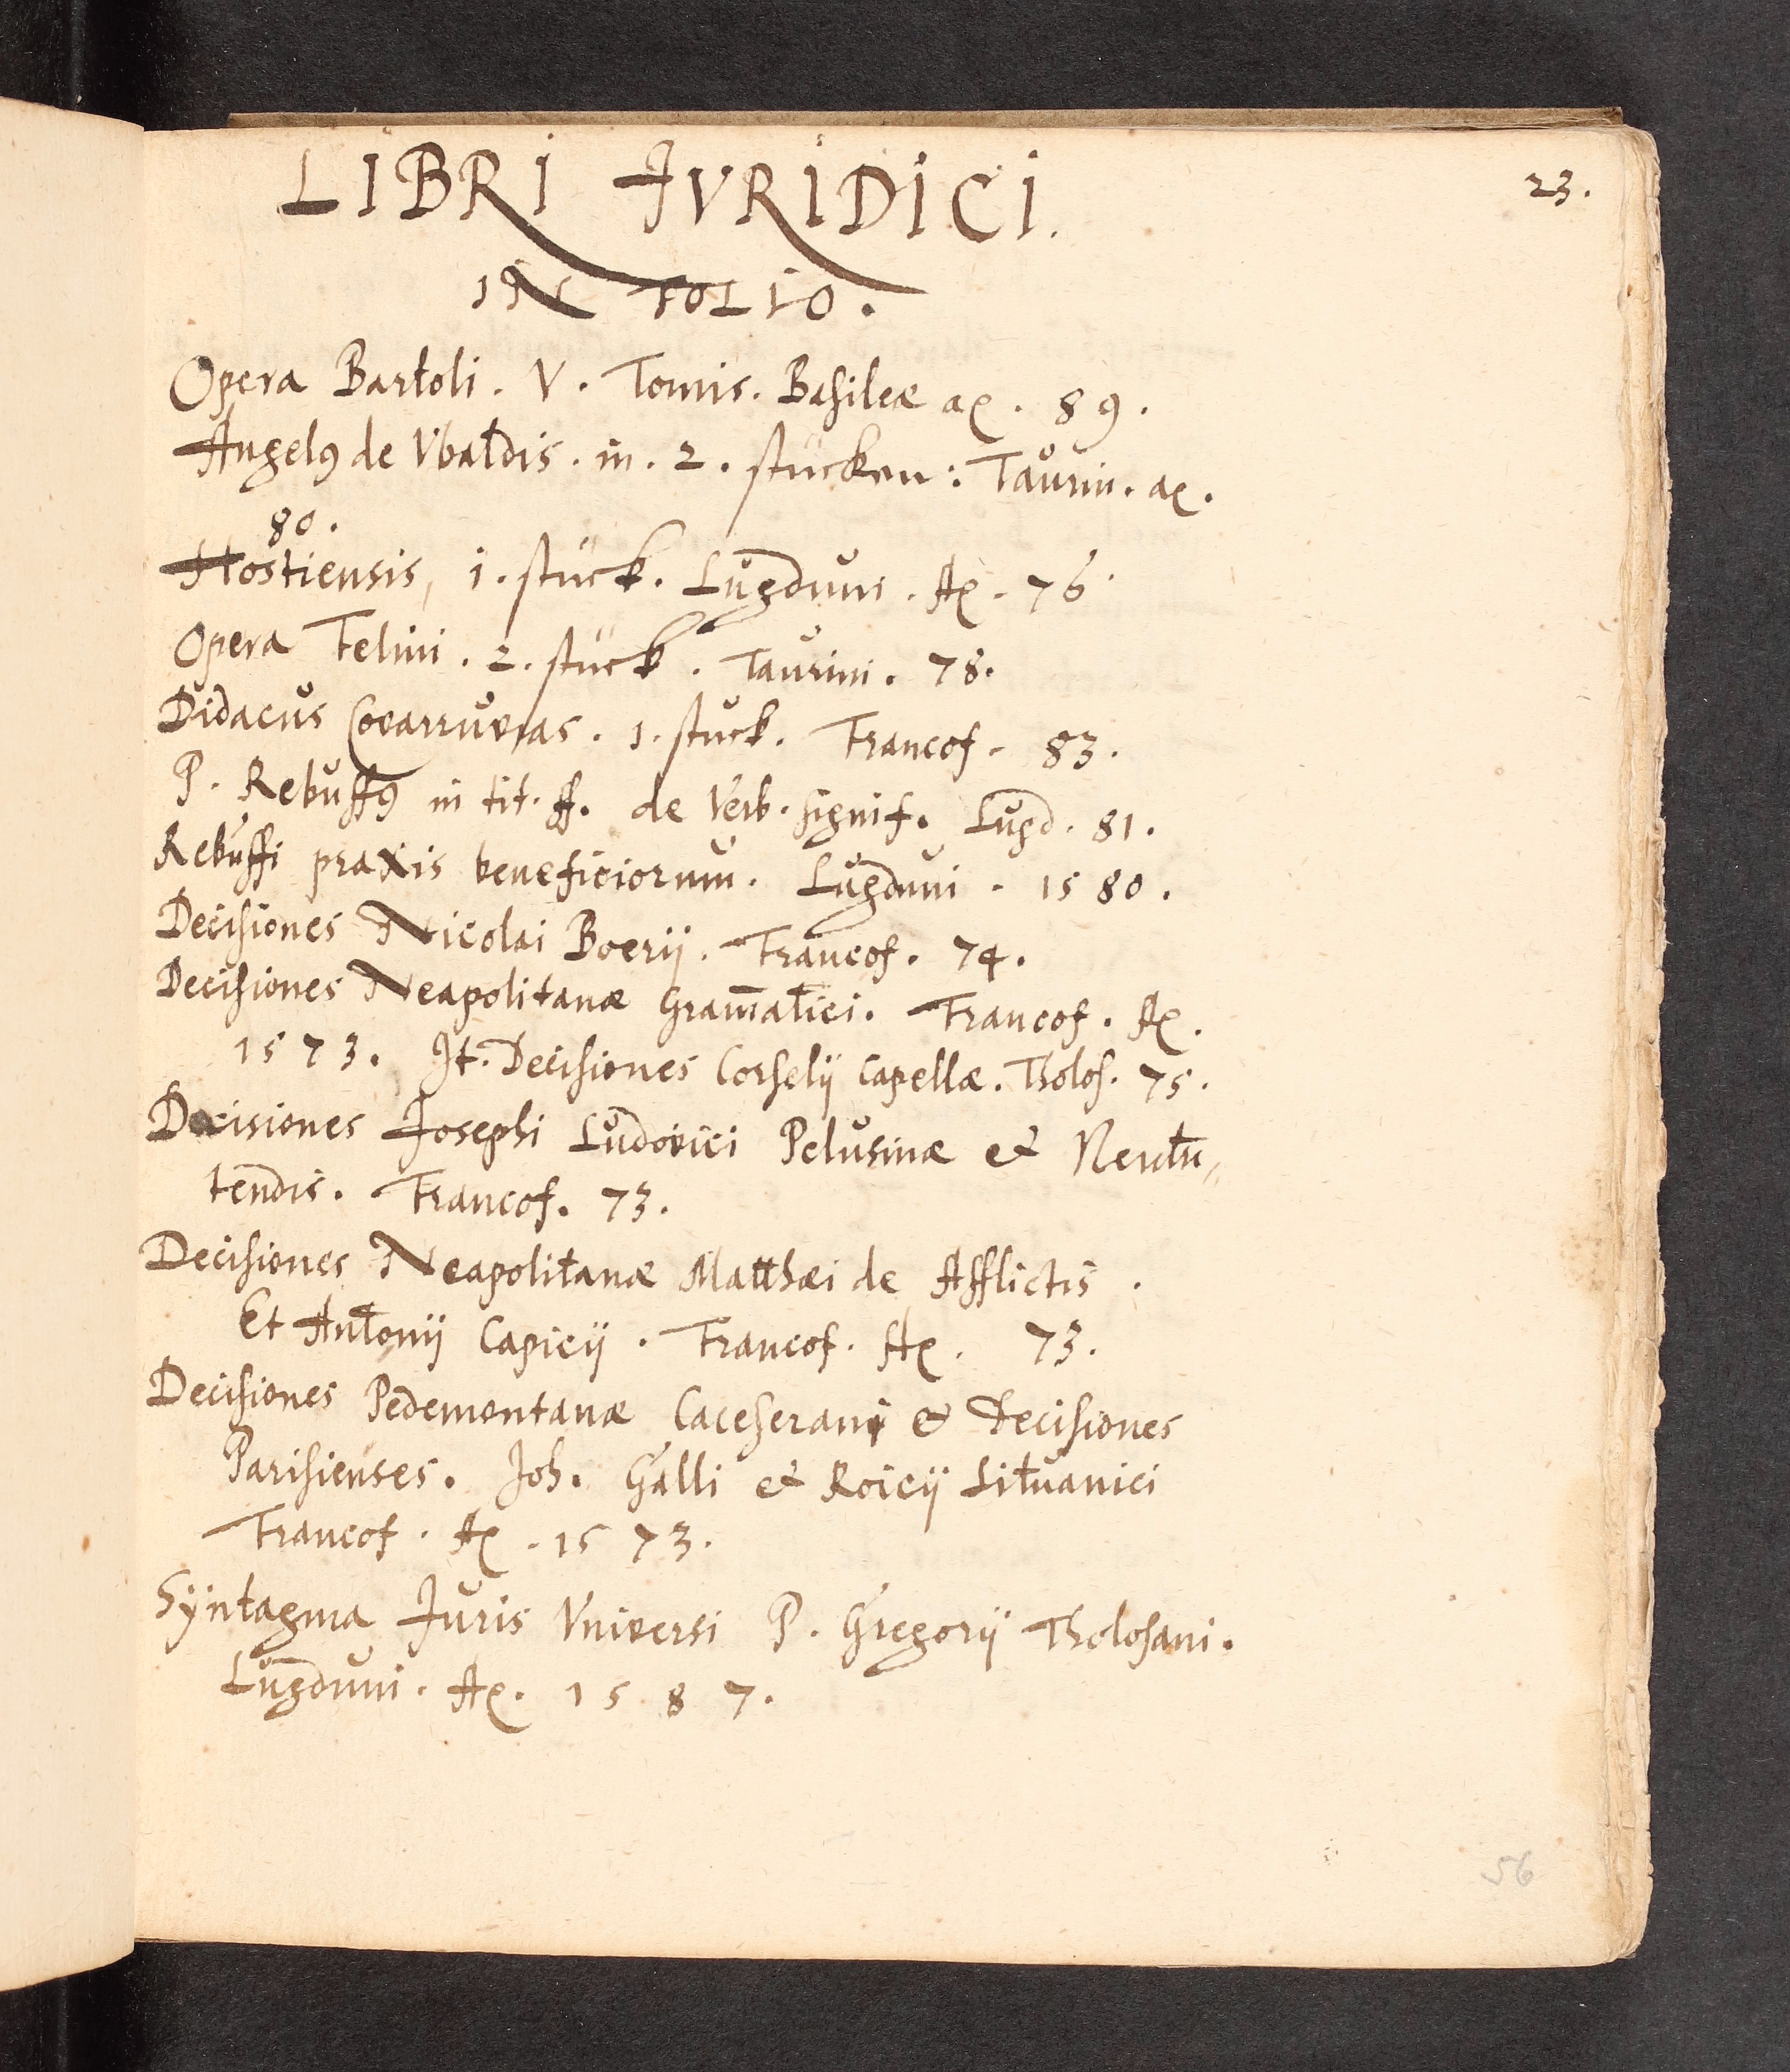 23.
LIBRI IVRIDICI.
IN FOLIO.
Opera Bartoli. V. Tomis. Basileæ aō. 89.
Angelꝰ de Vbaldis. in. 2. stucken: Taurin. aō.
80.
Hostiensis, 1. stuck. Lugduni. Aō. 76.
Opera Felini. 2. stuck. Taurini. 78.
Didacus Covarruvias. 1. stuck. Francof. 83.
P. Rebuffꝰ in tit. ff. de Verb. signif. Lugd. 81.
Rebuffi praxis beneficiorum. Lugduni. 1580.
Decisiones Nicolai Boerij. Francof. 74.
Decisiones Neapolitanæ Gram̄atici. Francof. Aō.
1573. It. Decisiones Corselij Capellæ. Tholos. 75.
Decisiones Josephi Ludovici Pelusinæ et
tendis. Francof. 73.
Decisiones Neapolitanæ Matthæi de Afflictis.
Et Antonij Capicij. Francof. Aō. 73.
Decisiones Pedemontanæ Caceserani & Decisiones
Parisienses. Joh. Galli et Roicij Lituanici
Francof. Aō. 1573.
Syntagma Juris Vniversi P. Gregorij Tholosani.
Lugduni. Aō. 1587.
56